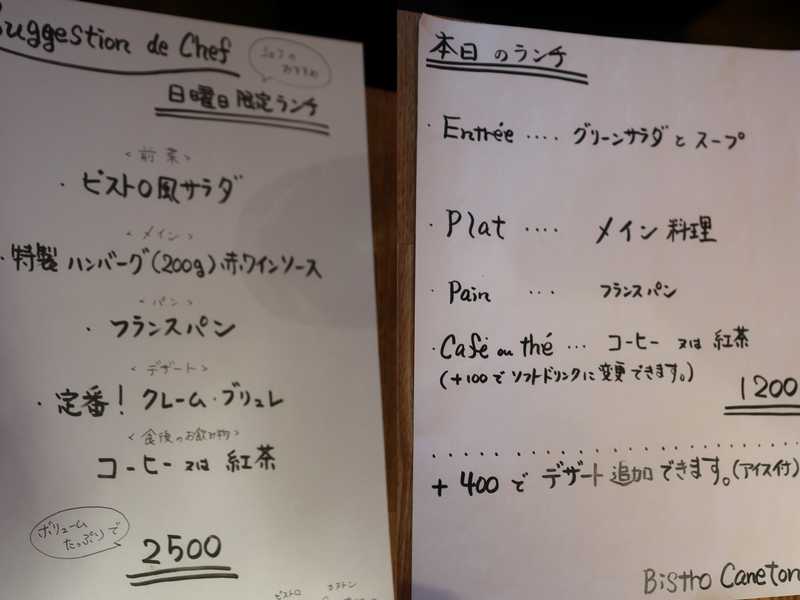 Suggestion de Chef
シェフの
おすすめ
日曜日限定ランチ
<前菜>
・ビストロ風サラダ
<メイン>
・特製ハンバーグ(200g)赤ワインソース
<パン>
・フランスパン
<デザート>
・定番!クレーム・ブリュレ
<食後のお飲み物>
コーヒー又は紅茶
ボリューム
たっぷりで
2500
ビストロ カネトン
本日のランチ
・Entrée ‥‥ グリーンサラダとスープ
・Plat ‥‥ メイン料理
・Pain … フランスパン
・Café ou thé … コーヒー又は紅茶
(+100でソフトドリンクに変更できます。)
1200
+400でデザート追加できます。(アイス付)
Bistro Caneton